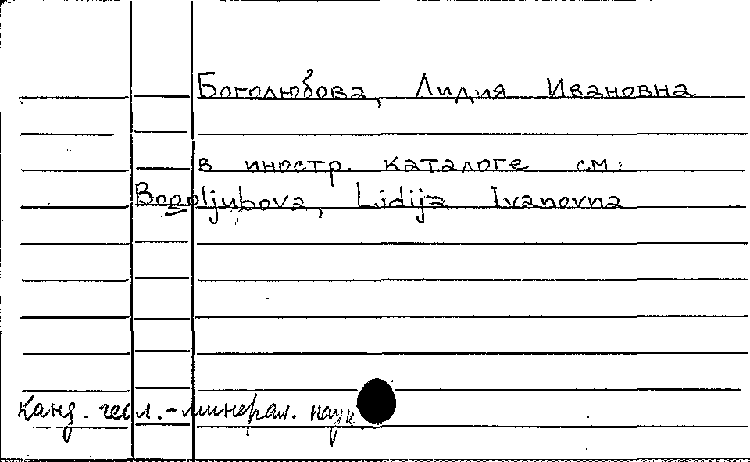 Боголюбова, Лидия Ивановна
в иностр. каталоге см:
Bogoljubova, Lidija Ivanovna
Канд. геол.-минерал. наук